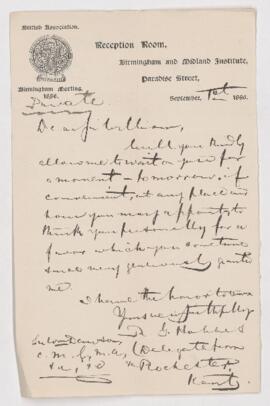 British Association.
Reception Room,
Birmingham and Midland Institute,
Paradise Street,
Birmingham Meeting,
1886.
September, 1st 1886.
Private
Dear Sir William,
Will you kindly
allow me to wait on you for
a moment - tomorrow, if
convenient, at any place and
hour you may appoint, to
thank you personally for a
favor which you sometime
since very generously granted
me.
I have the honor to be
Yours very faithfully
Sir William Dawson,
C.M.G., M.A., (Delegate from
&c, &c Rochester,
Kent)